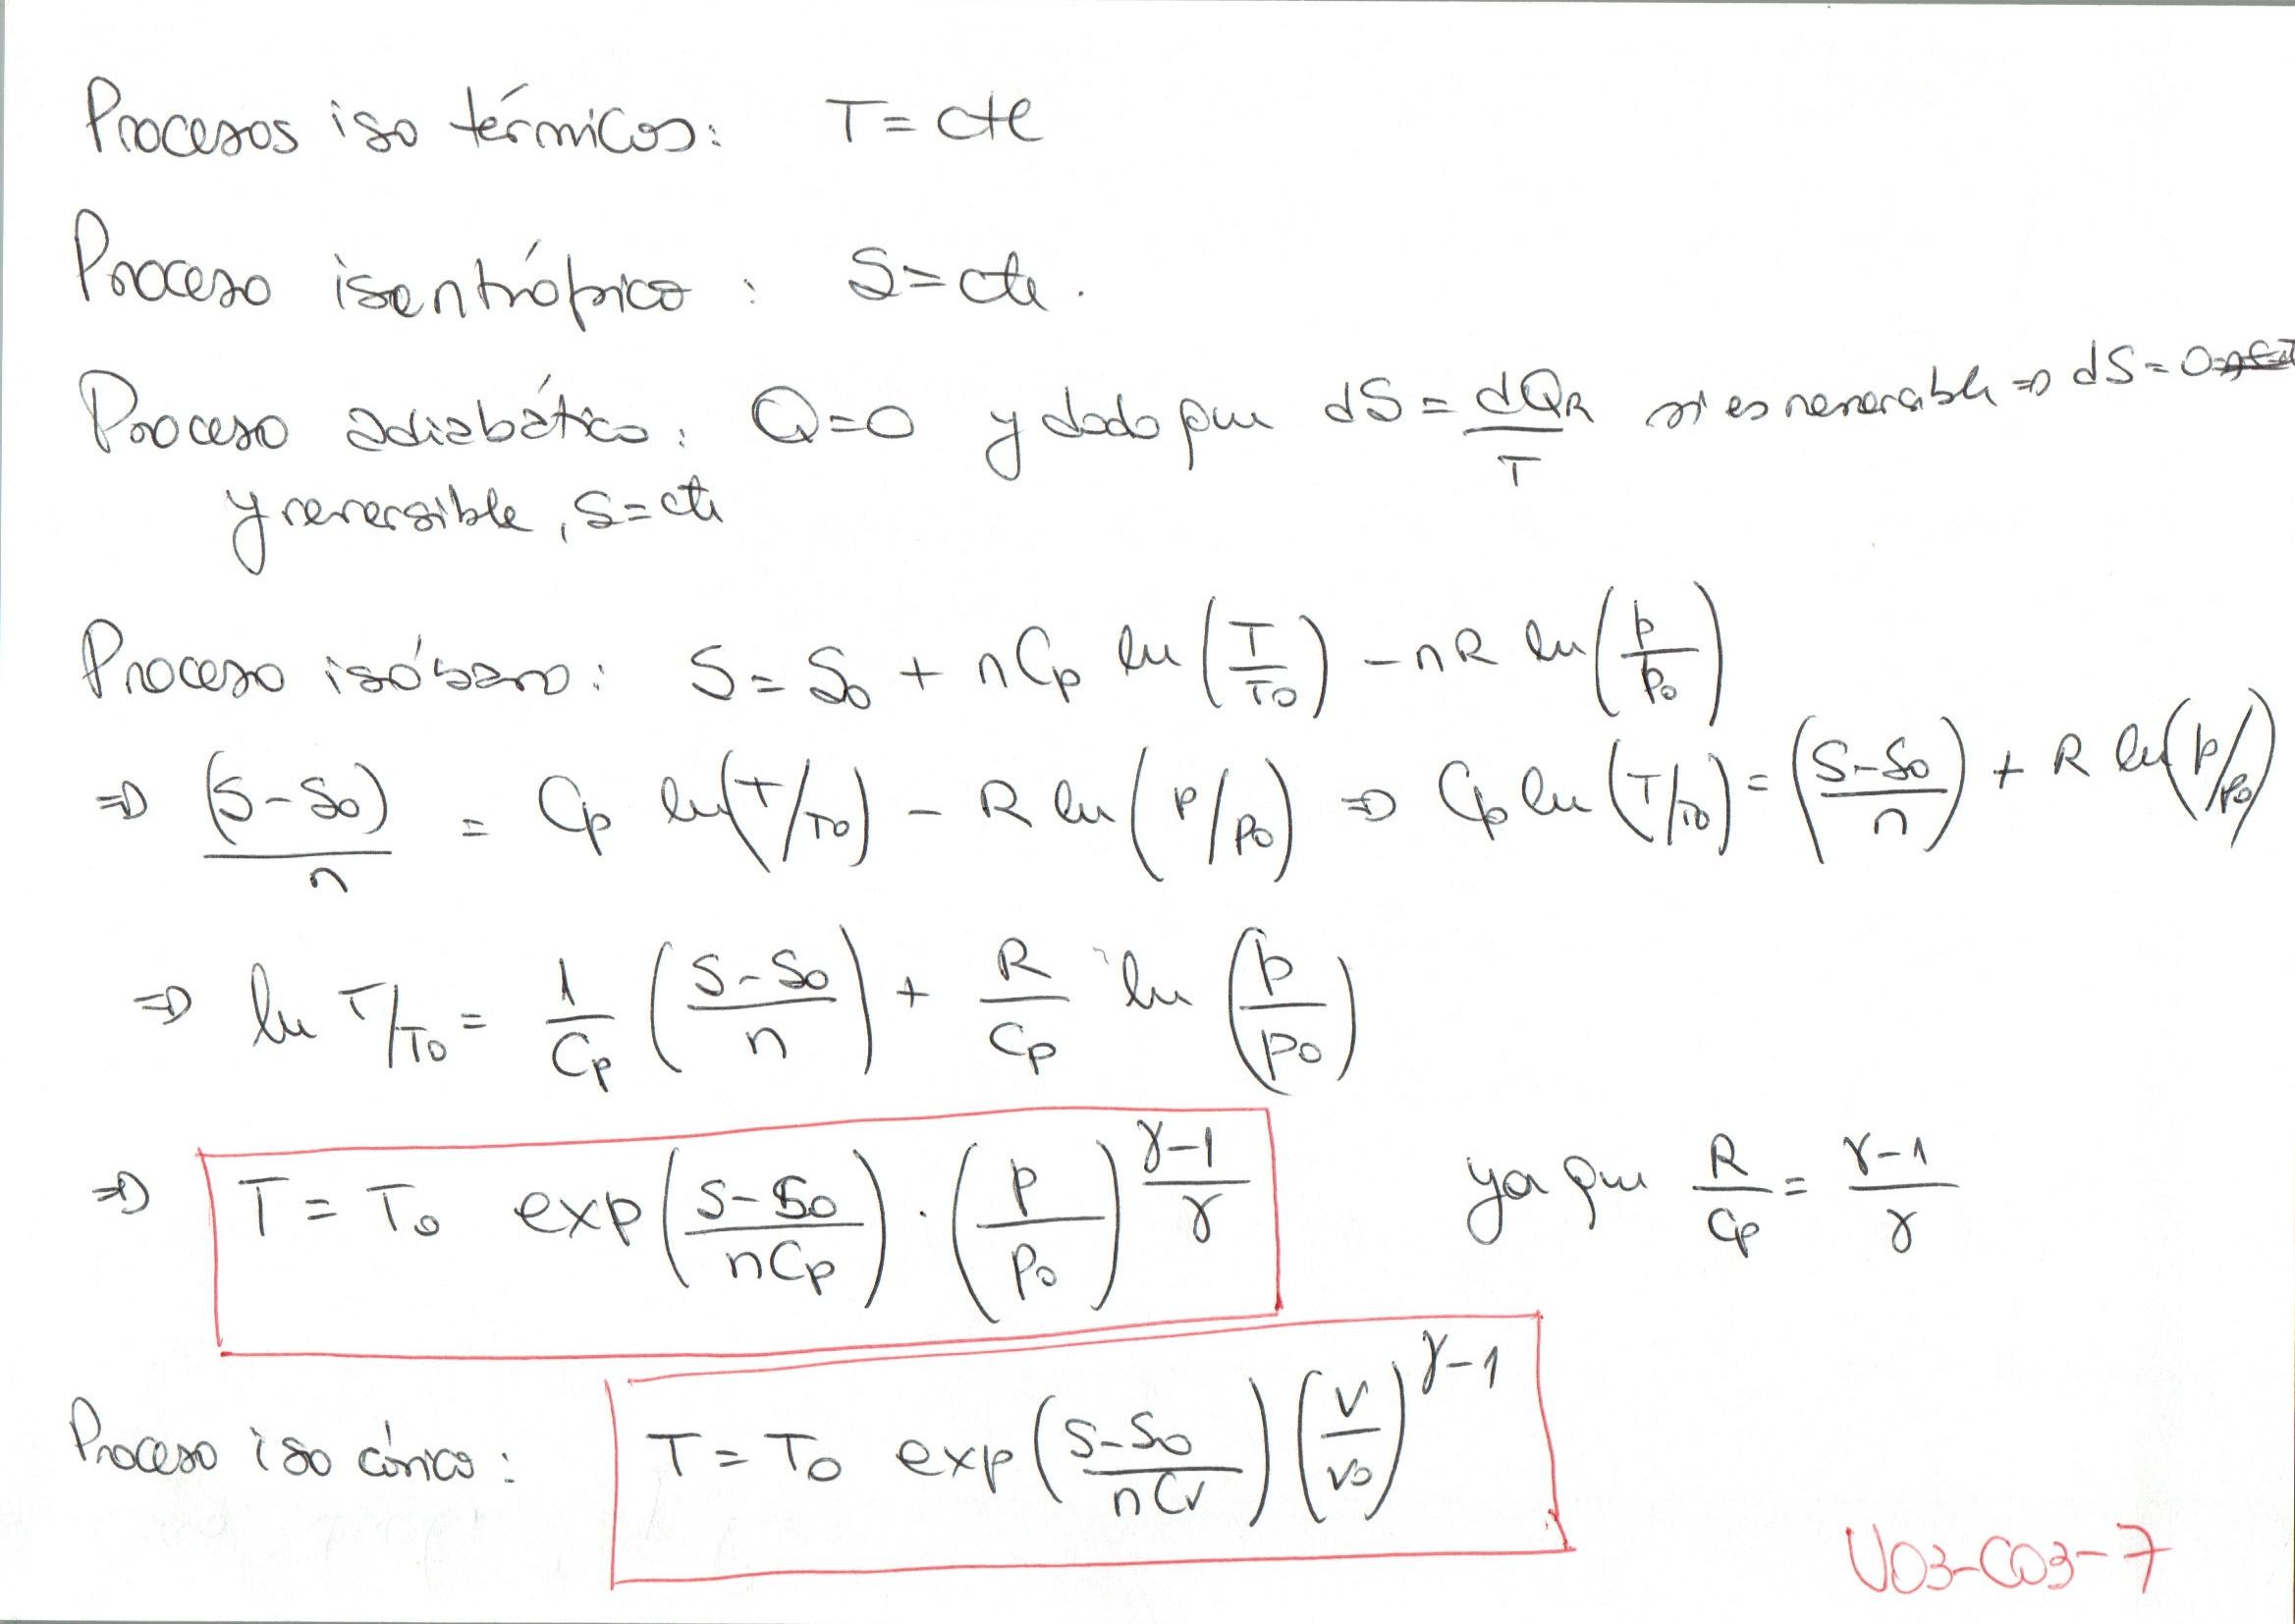 Procesos isotérmicos: T = cte
Proceso isentrópico: S = cte.
Proceso adiabático: Q=0 y dado que dS = dQR/T si es reversible ⇒ dS = 0
y reversible, S = cte
Proceso isóbaro: S = S0 + nCp ln(T/T0) − nR ln(p/p0)
⇒ (S−S0)/n = Cp ln(T/T0) − R ln(p/p0) ⇒ Cp ln(T/T0) = ((S−S0)/n) + R ln(p/p0)
⇒ ln T/T0 = 1/Cp ((S−S0)/n) + R/Cp ln(p/p0)
⇒ T = T0 exp((S−S0)/nCp) · (p/p0)^((γ−1)/γ) ya que R/Cp = (γ−1)/γ
Proceso isocórico: T = T0 exp((S−S0)/nCv) (V/V0)^(γ−1)
U03-C03-7